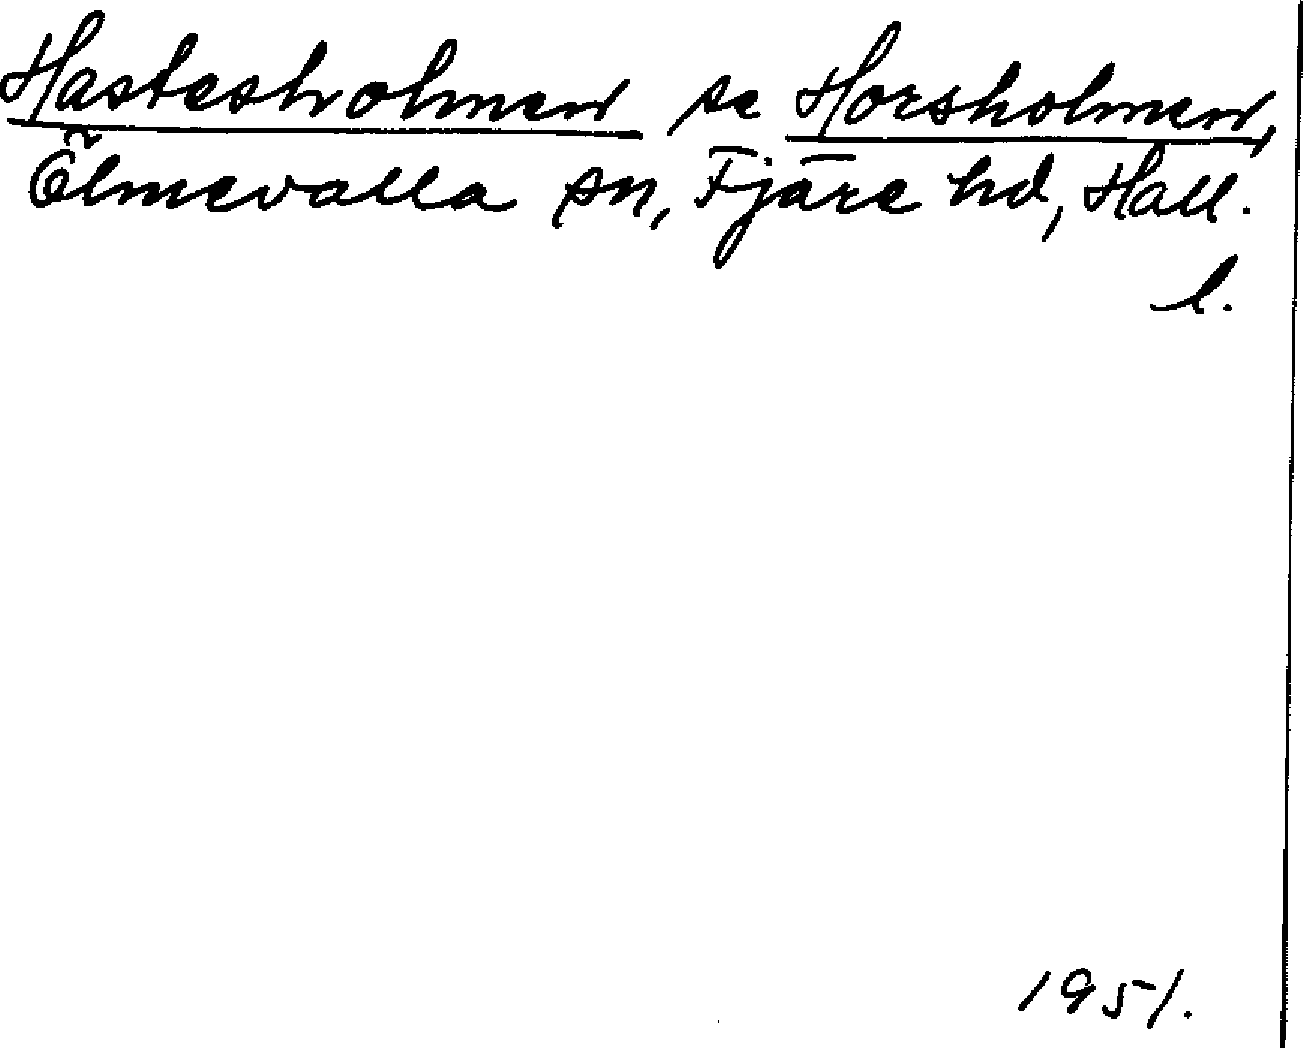 Hastesholmen se Horsholmen,
Ölmevalla sn, Fjäre hd, Hall.
l.
1951.